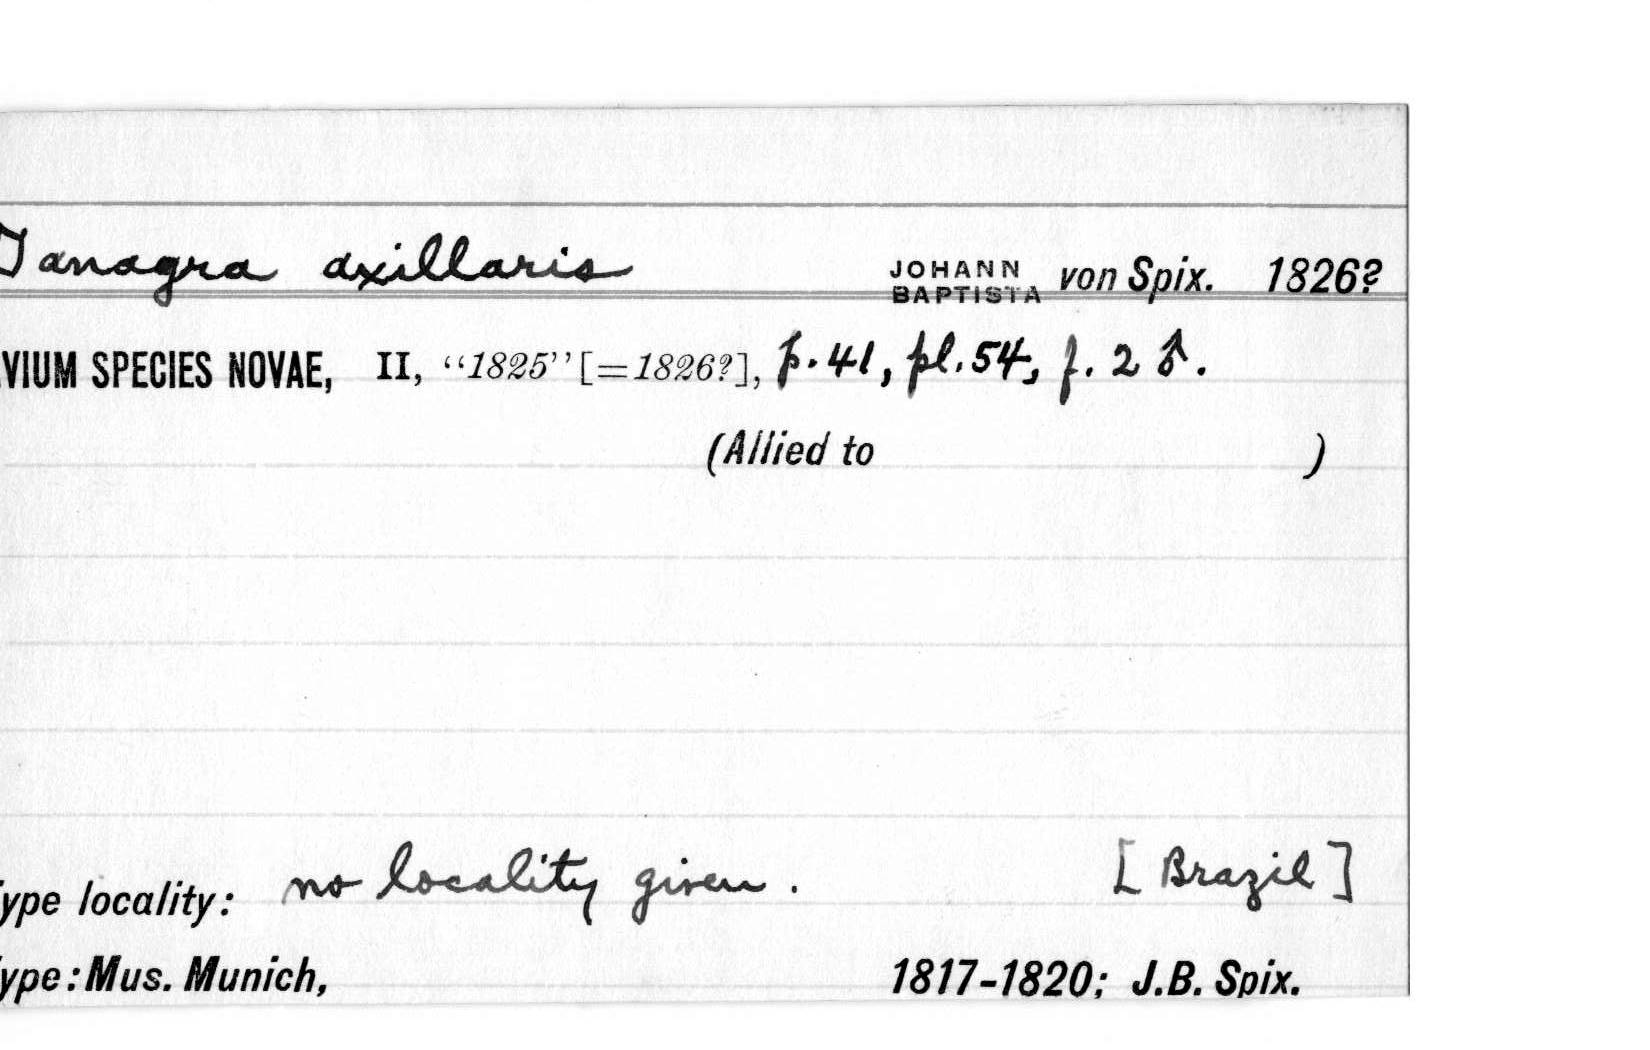 Tanagra axillaris JOHANN BAPTISTA von Spix. 1826?
VIUM SPECIES NOVAE, II, “1825” [=1826?], p. 41, pl. 54, f. 2 ♂.
(Allied to )
ype locality: no locality given. [Brazil]
ype: Mus. Munich, 1817-1820; J.B. Spix.